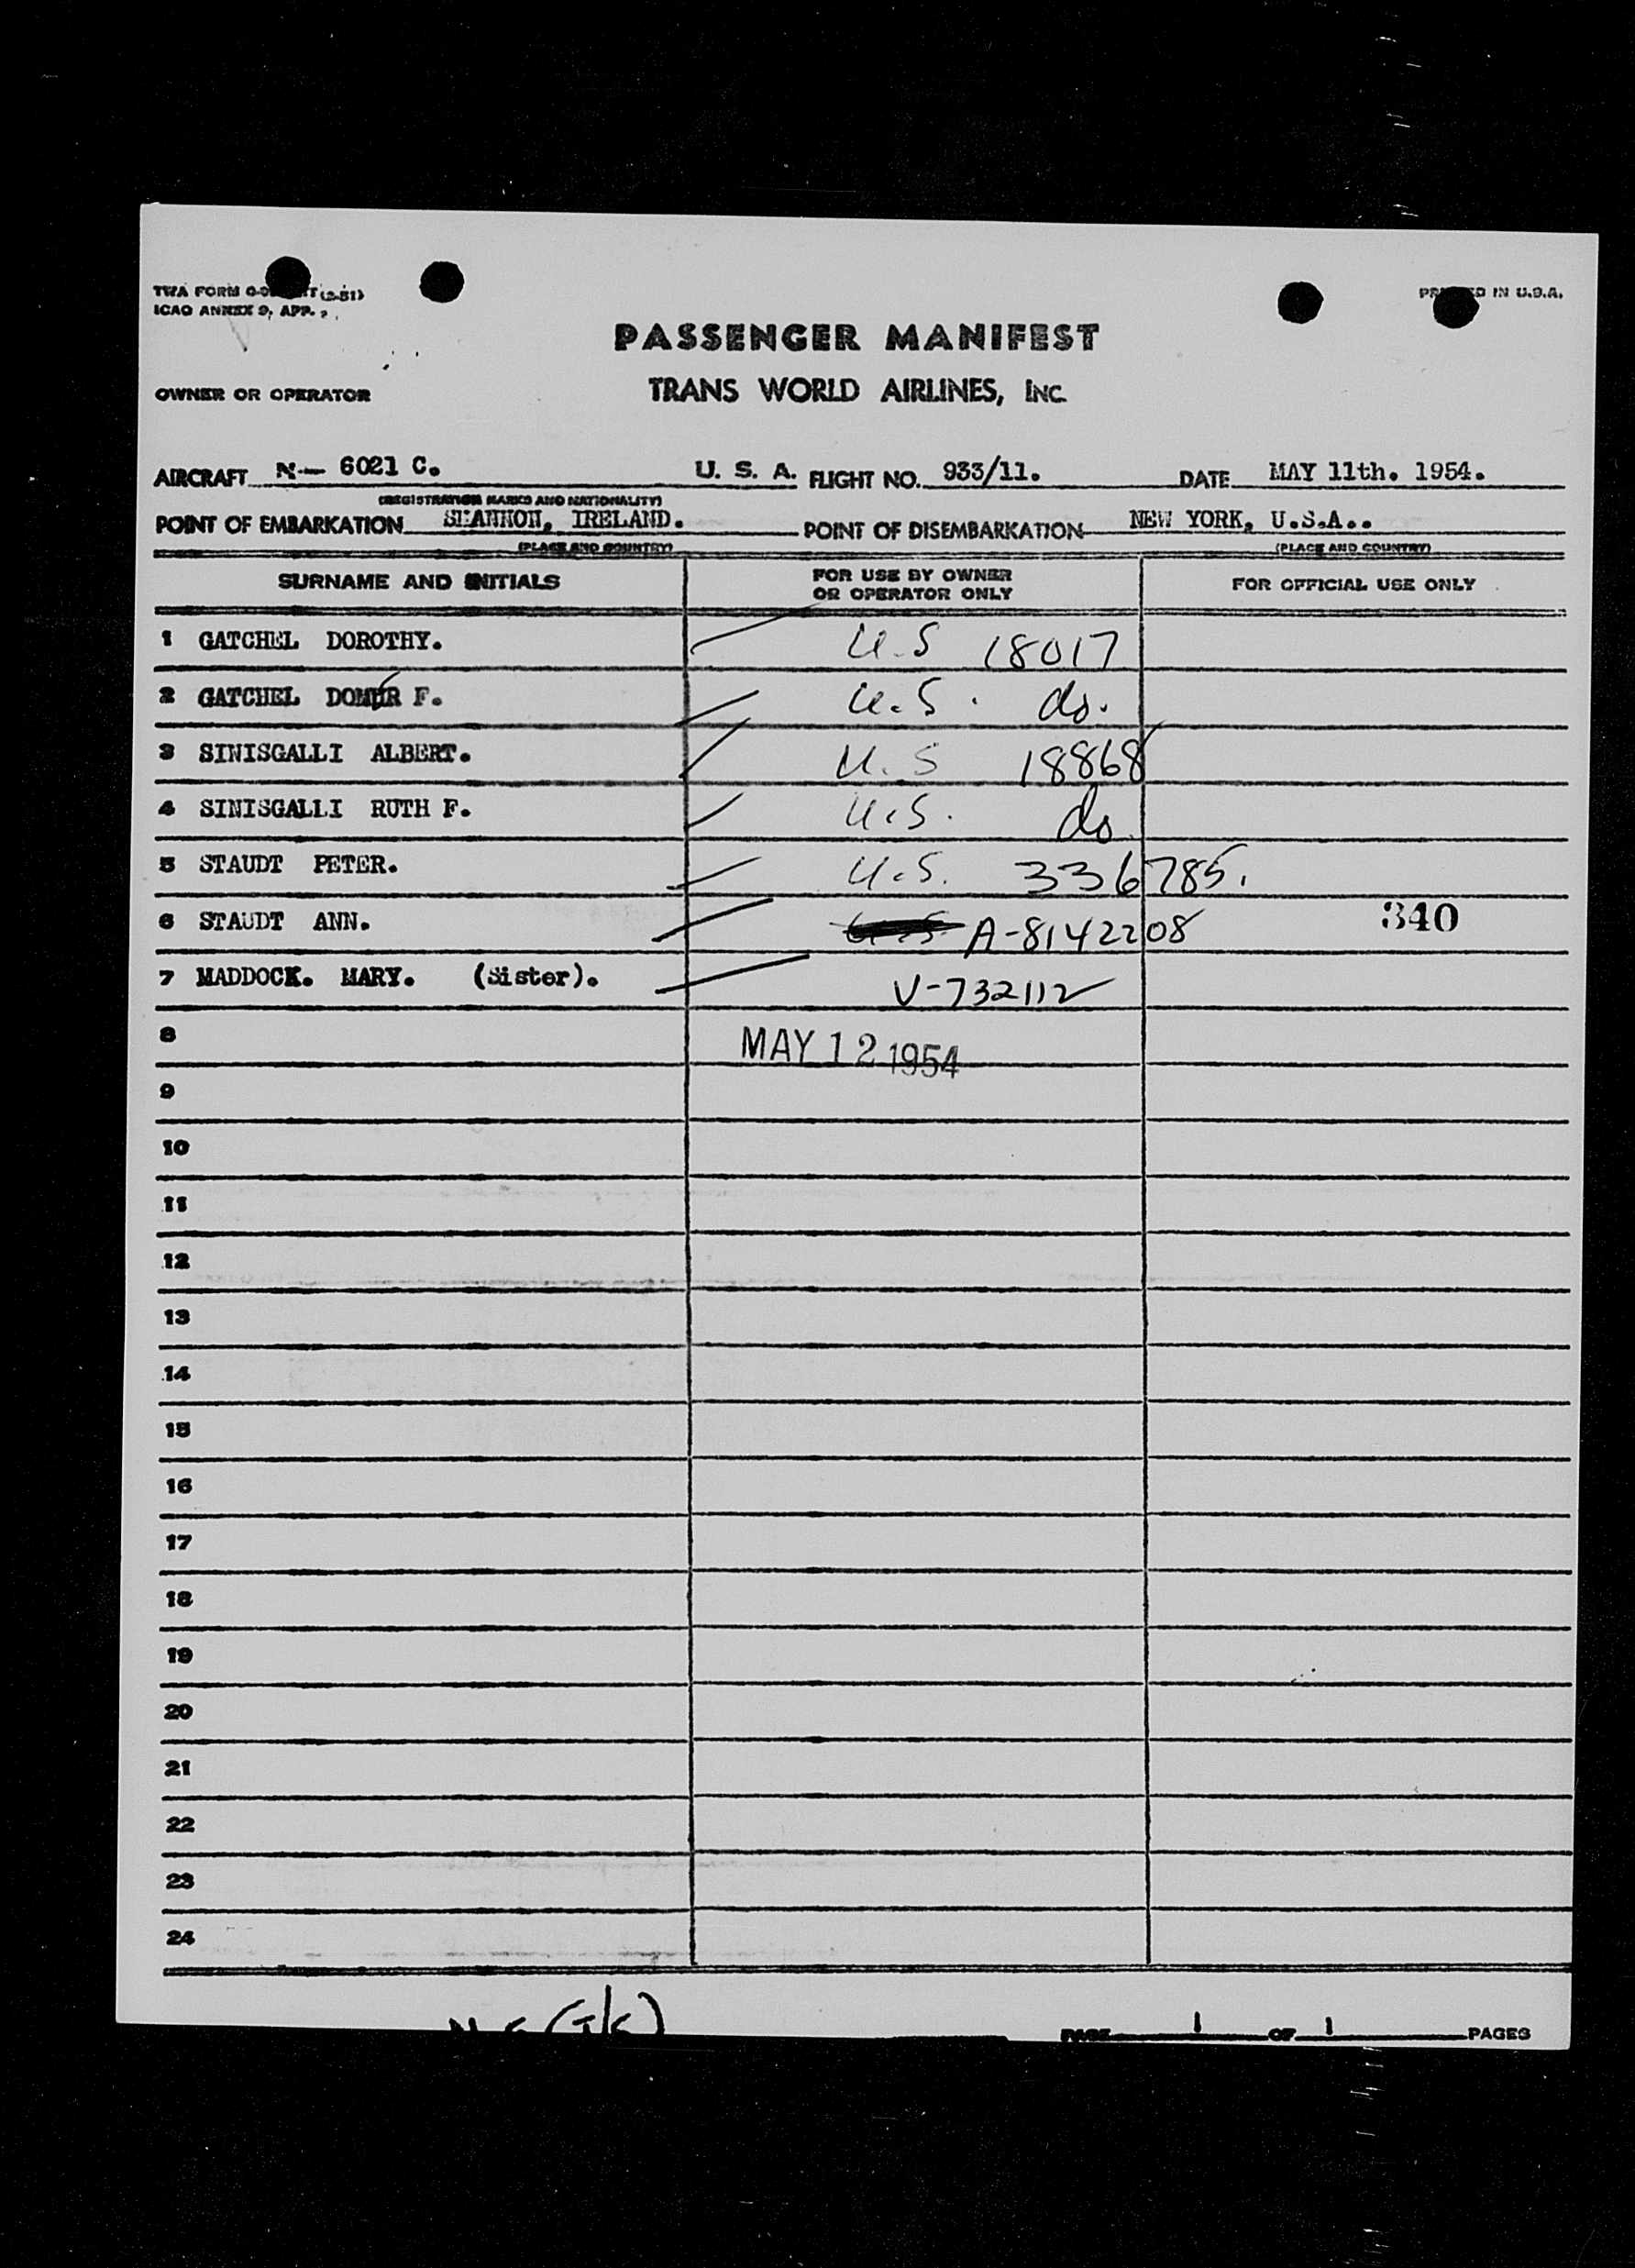 TWA FORM (2-51)
PRINTED IN U.S.A.
ICAO ANNEX 9, APP.
PASSENGER MANIFEST
OWNER OR OPERATOR
TRANS WORLD AIRLINES, INC.
AIRCRAFT N-- 6021 C. U. S. A. FLIGHT NO. 933/11. DATE MAY 11th. 1954.
(REGISTRATION MARKS AND NATIONALITY)
POINT OF EMBARKATION SHANNON, IRELAND. POINT OF DISEMBARKATION NEW YORK, U.S.A..
(PLACE AND COUNTRY) (PLACE AND COUNTRY)
SURNAME AND INITIALS FOR USE BY OWNER OR OPERATOR ONLY FOR OFFICIAL USE ONLY
1 GATCHEL DOROTHY. U.S 18017
2 GATCHEL F. U.S. do.
3 SINISGALLI ALBERT. U.S 18868
4 SINISGALLI RUTH F. U.S. do
5 STAUDT PETER. U.S. 336785.
6 STAUDT ANN. A-8142208 340
7 MADDOCK. MARY. (Sister). V-732112
8 MAY 12 1954
9
10
11
12
13
14
15
16
17
18
19
20
21
22
23
24
PAGE 1 OF 1 PAGES